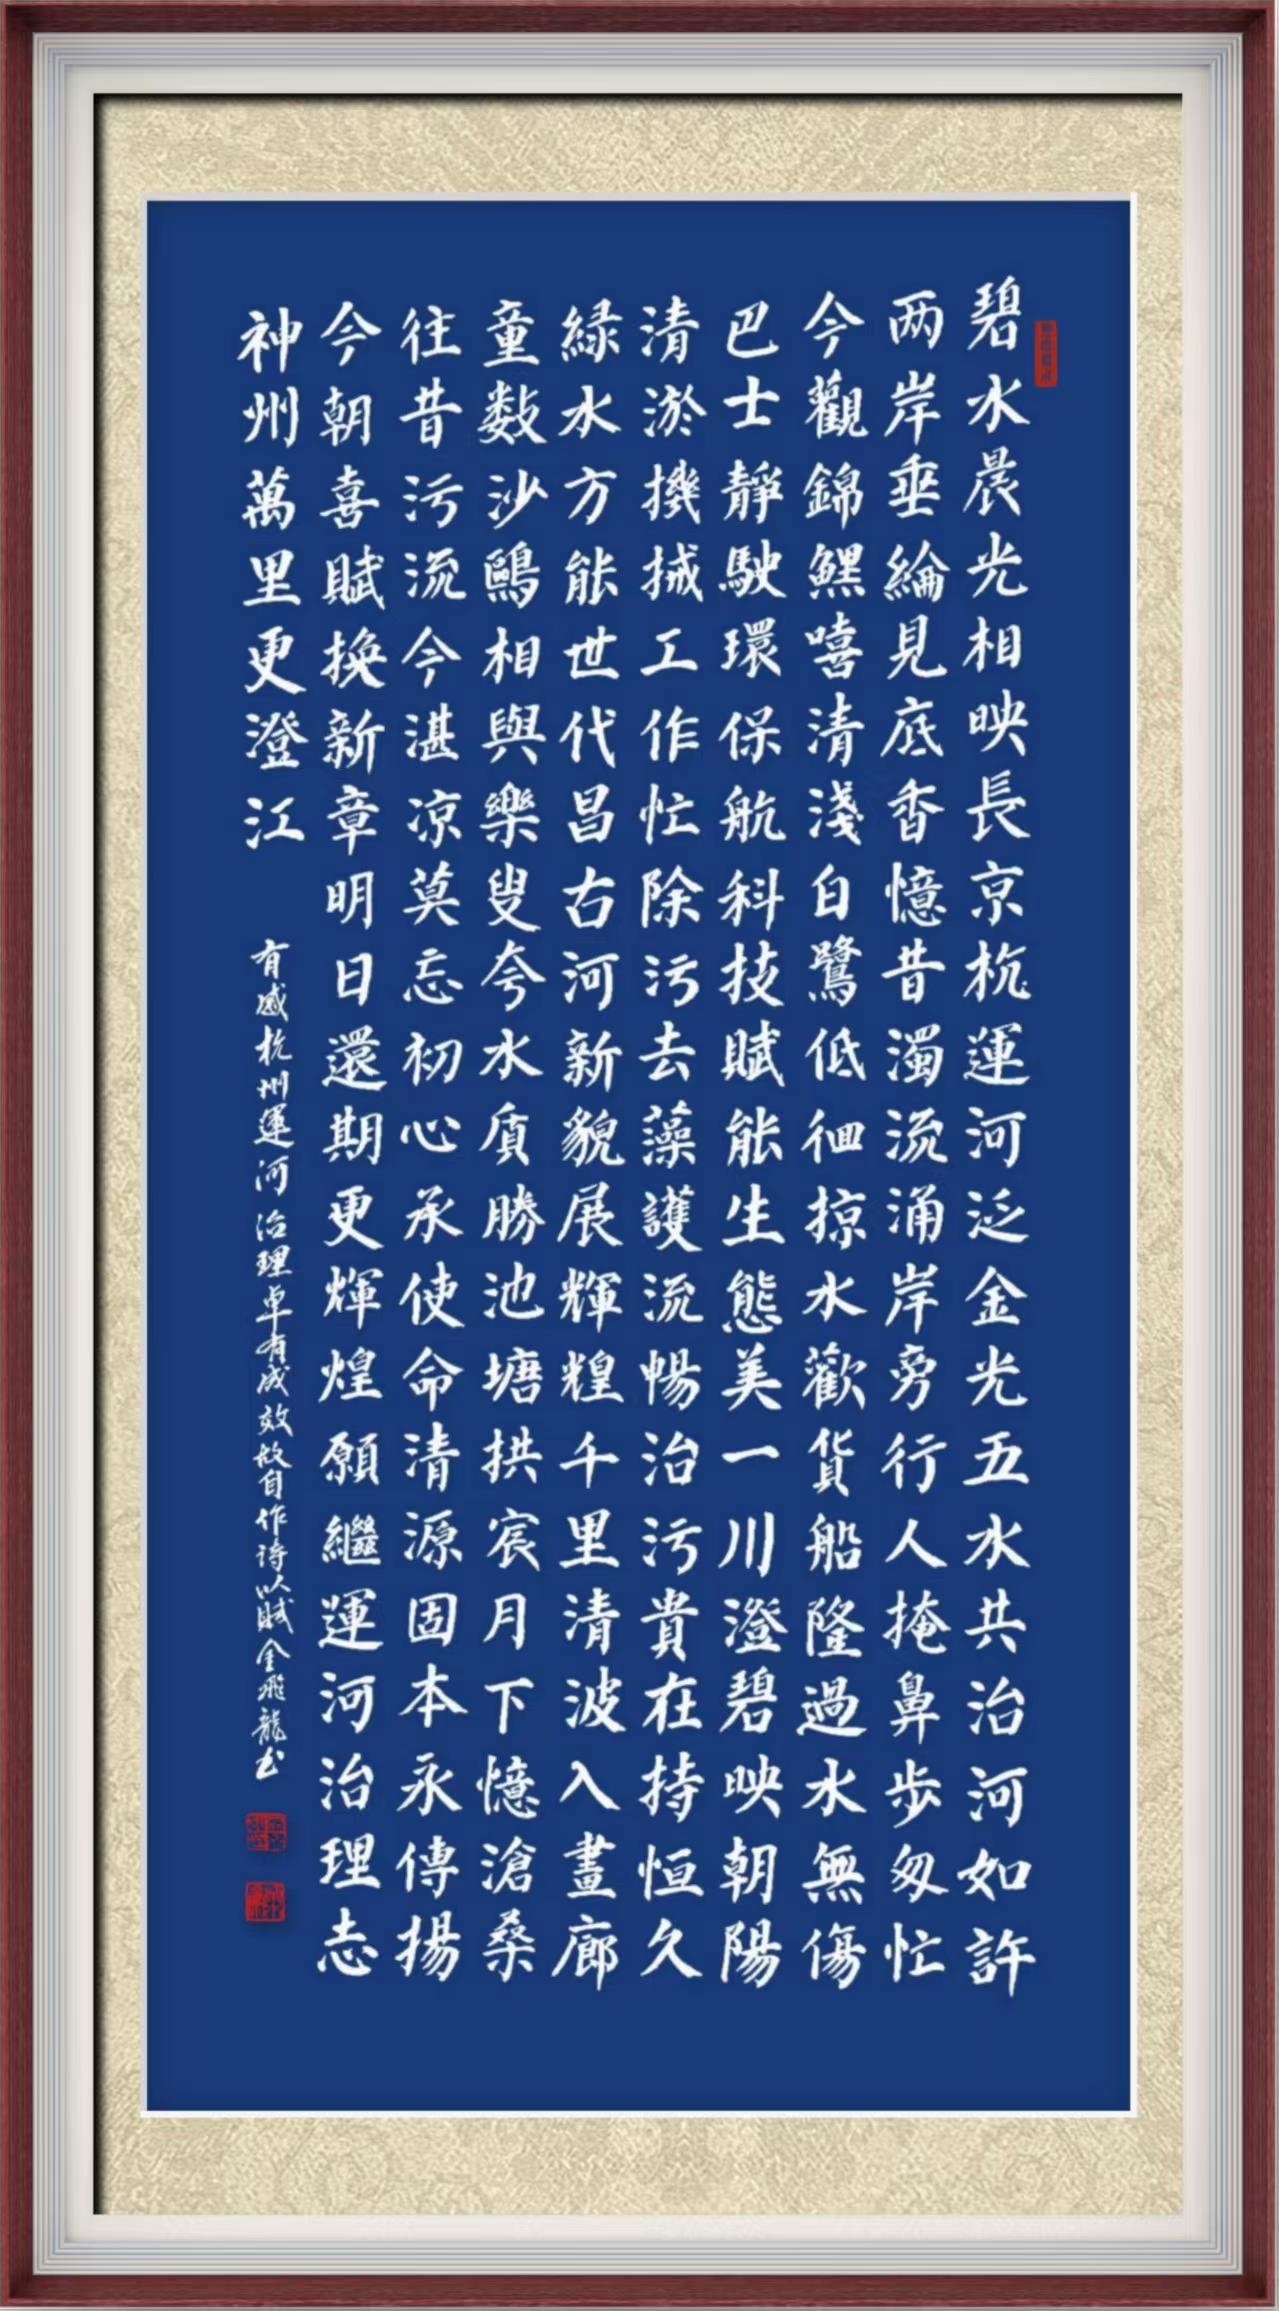 碧水晨光相映長京杭運河泛金光五水共治河如許
两岸垂綸見底香憶昔濁流涌岸旁行人掩鼻步匆忙
今觀錦鯉嘻清淺白鷺低徊掠水歡貨船隆過水無傷
巴士靜駛環保航科技賦能生態美一川澄碧映朝陽
清淤機械工作忙除污去藻護流暢治污貴在持恒久
緑水方能世代昌古河新貌展輝煌千里清波入畫廊
童数沙鷗相與樂叟夸水質勝池塘拱宸月下憶滄桑
往昔污流今湛凉莫忘初心承使命清源固本永傳揚
今朝喜賦换新章明日還期更煇煌願繼運河治理志
神州萬里更澄江
有感杭州運河治理卓有成效故自作诗以賦金飛龍书